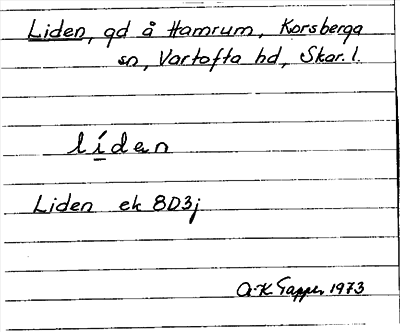 Liden, gd å Hamrum, Korsberga
sn, Vartofta hd, Skar. l.
líden
Liden ek 8D3j
A-K Tapper 1973